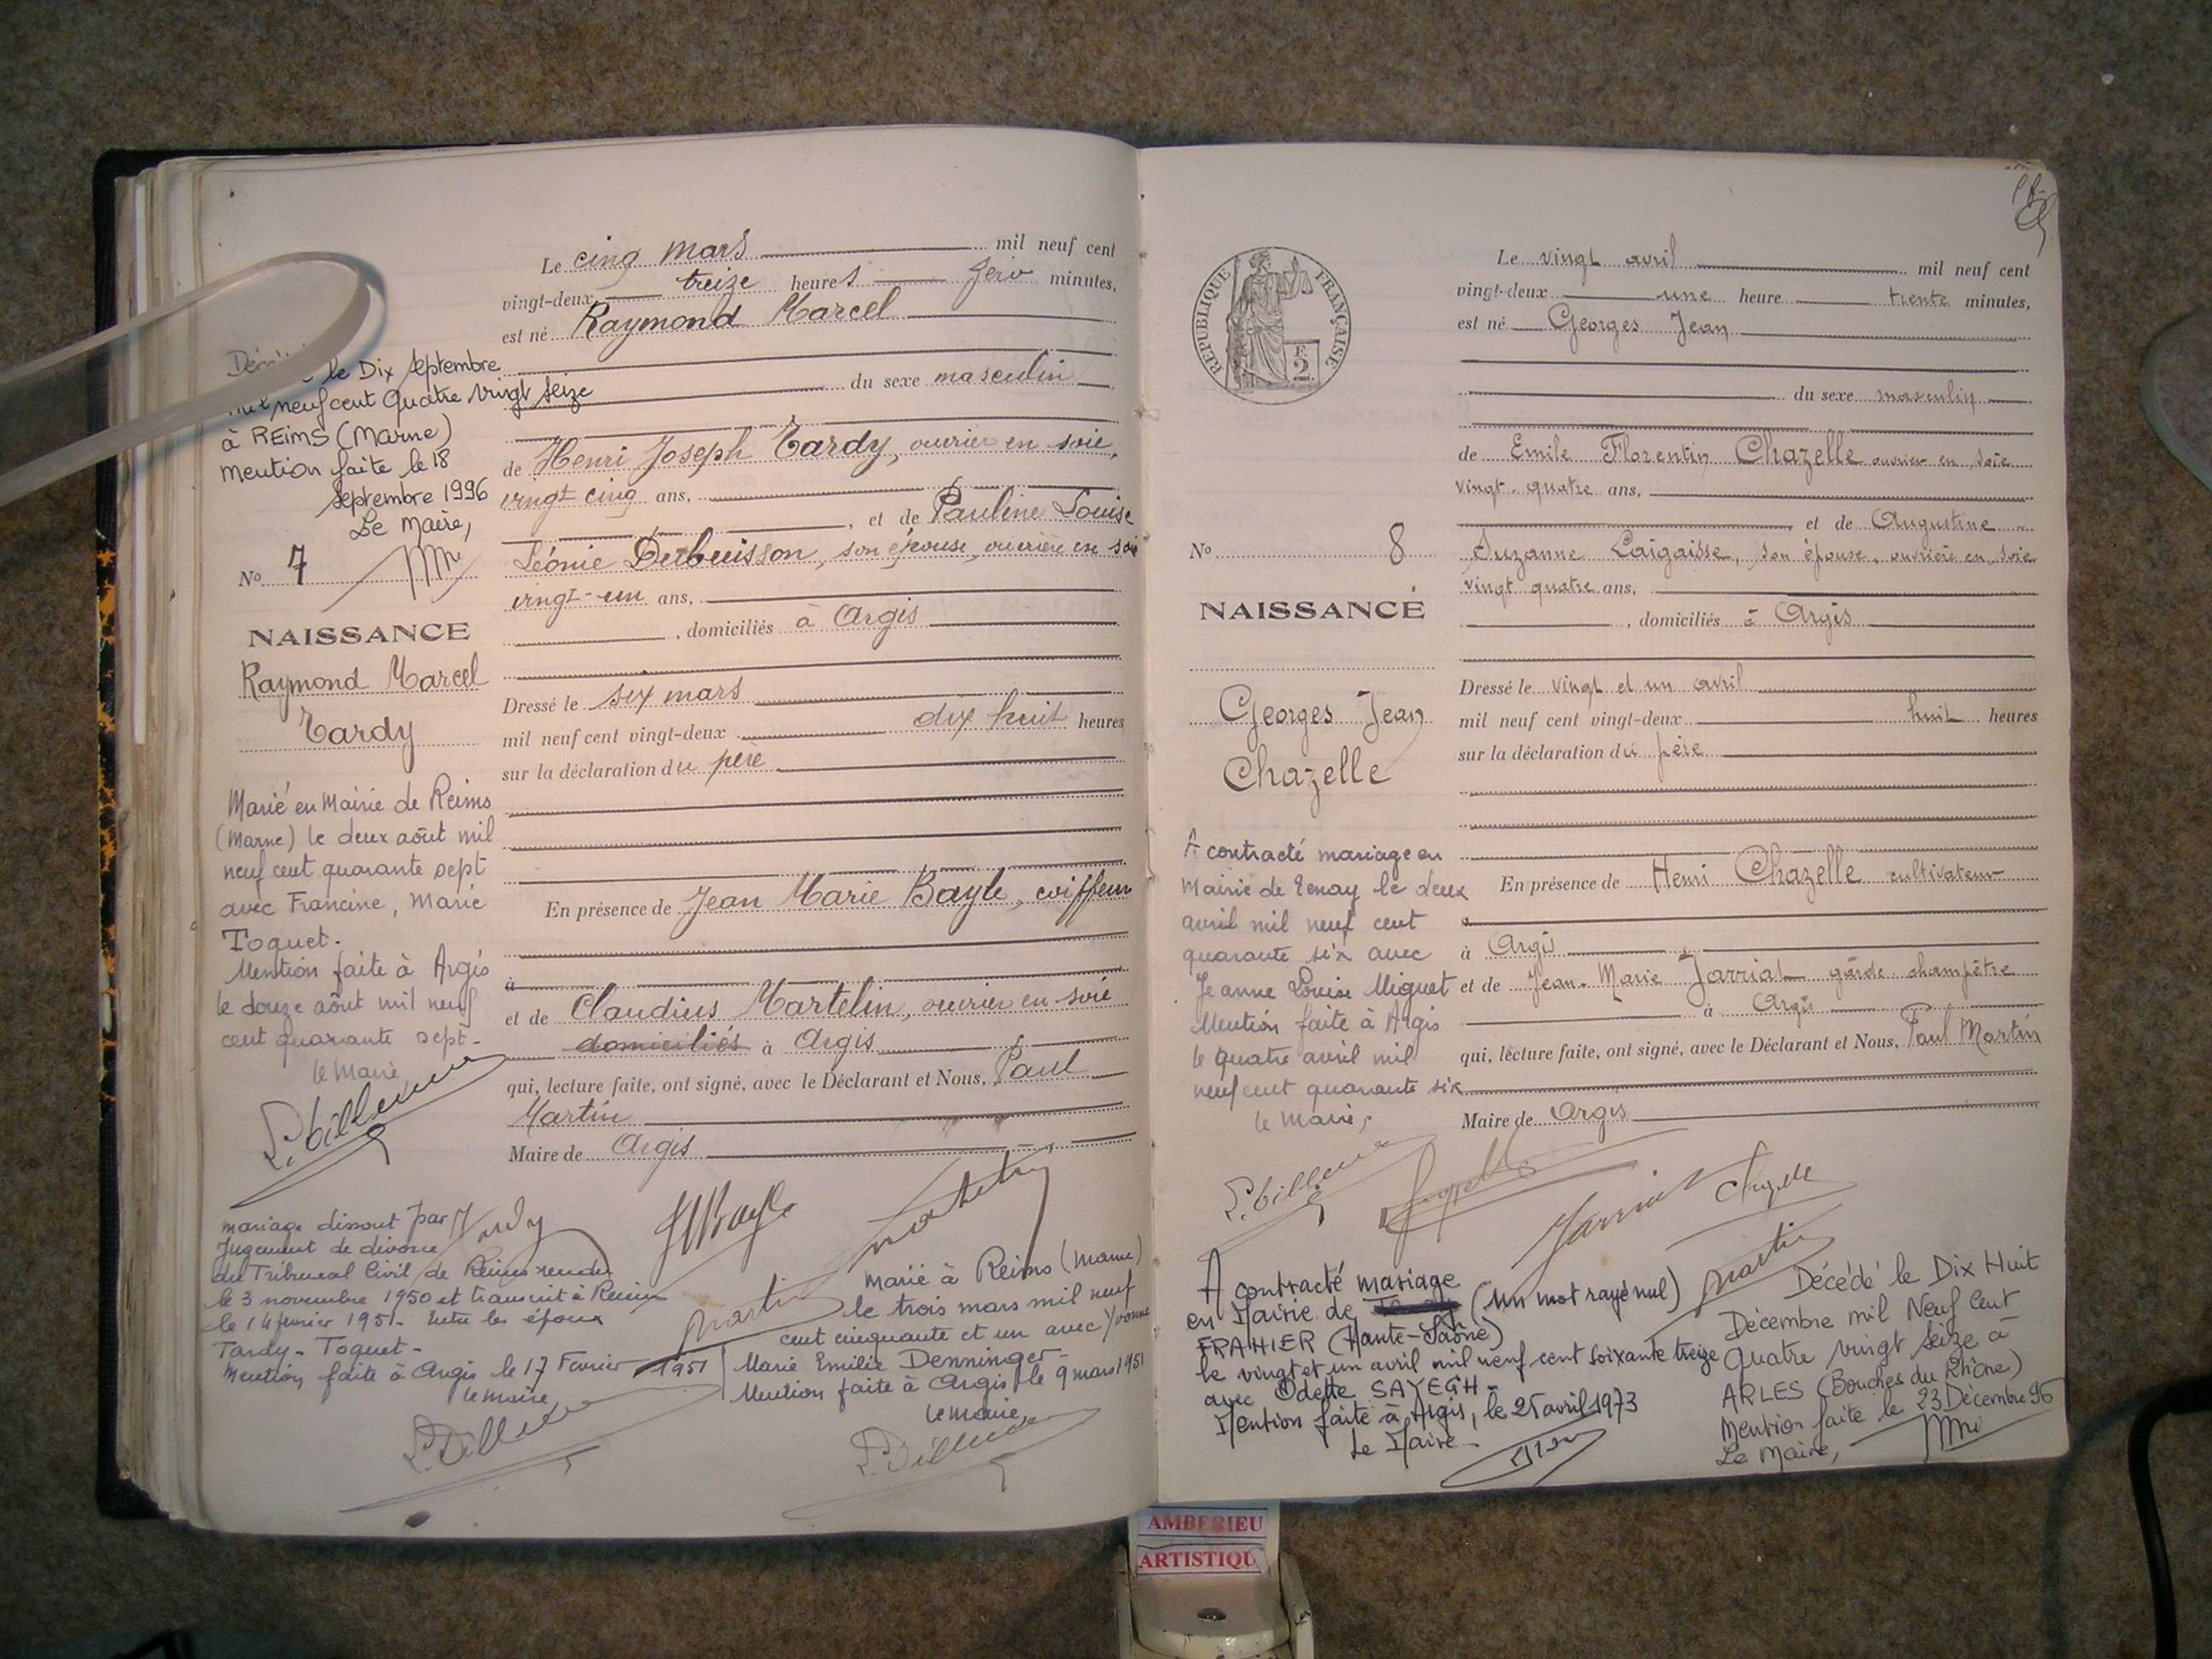 Le cinq mars mil neuf cent
vingt-deux treize heures zéro minutes,
est né Raymond Marcel
du sexe masculin
de Henri Joseph Tardy, ouvrier en soie,
vingt cinq ans,
, et de Pauline Louise
Léonie Dubuisson, son épouse, ouvrière en soie
vingt-un ans,
, domiciliés à Argis
Dressé le six mars
mil neuf cent vingt-deux dix huit heures
sur la déclaration du père
En présence de Jean Marie Bayle, coiffeur
à
et de Claudius Martelin, ouvrier en soie
domiciliés à Argis
qui, lecture faite, ont signé, avec le Déclarant et Nous, Paul
Martin
Maire de Argis
le Dix Septembre
mil neuf cent Quatre vingt seize
à REIMS (Marne)
Mention faite le 18
Septembre 1996
Le Maire,
No 7
NAISSANCE
Raymond Marcel
Tardy
Marié en Mairie de Reims
(Marne) le deux août mil
neuf cent quarante sept
avec Francine, Marie
Toquet.
Mention faite à Argis
le douze août mil neuf
cent quarante sept-
le Maire
Tardy
JMBayle
Martelin
Martin
mariage dissout par
Jugement de divorce
du Tribunal Civil de Reims rendu
le 3 novembre 1950 et transcrit à Reims
le 14 février 1951- Entre les époux
Tardy - Toquet -
Mention faite à Argis le 17 Février 1951
le maire
marié à Reims (Marne)
le trois mars mil neuf
cent cinquante et un avec Yvonne
Marie Emilie Denninger-
Mention faite à Argis le 9 mars 1951
le maire,
REPUBLIQUE FRANÇAISE
2
Le vingt avril mil neuf cent
vingt-deux une heure trente minutes,
est né Georges Jean
du sexe masculin
de Emile Florentin Chazelle ouvrier en soie
vingt-quatre ans,
et de Augustine
Suzanne Laigaisse, son épouse, ouvrière en soie
vingt quatre ans,
, domiciliés à Argis
Dressé le vingt et un avril
mil neuf cent vingt-deux huit heures
sur la déclaration du père
En présence de Henri Chazelle cultivateur
à Argis
et de Jean-Marie Jarriat garde champêtre
à Argis
qui, lecture faite, ont signé, avec le Déclarant et Nous, Paul Martin
Maire de Argis
No 8
NAISSANCE
Georges Jean
Chazelle
A contracté mariage en
Mairie de Tenay le deux
avril mil neuf cent
quarante six avec
Jeanne Louise Miguet
Mention faite à Argis
le quatre avril mil
neuf cent quarante six
le Maire,
Chazelle
Jarriat
Martin
A contracté mariage
en Mairie de (Un mot rayé nul)
FRAHIER (Haute-Saône)
le vingt et un avril mil neuf cent soixante treize
avec Odette SAYEGH-
Mention faite à Argis, le 25 avril 1973
Le Maire-
Décédé le Dix Huit
Décembre mil Neuf Cent
Quatre vingt Seize à
ARLES (Bouches du Rhône)
Mention faite le 23 Décembre 96
Le Maire,
AMBERIEU
ARTISTIQU